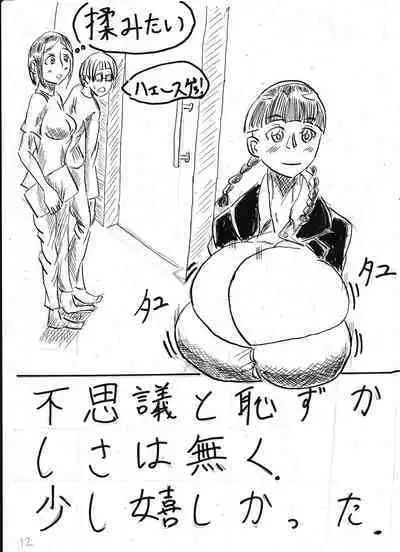 揉みたい
ハェースゲェ!
タユ
タユ
不思議と恥ずか
しさは無く.
少し嬉しかった.
12